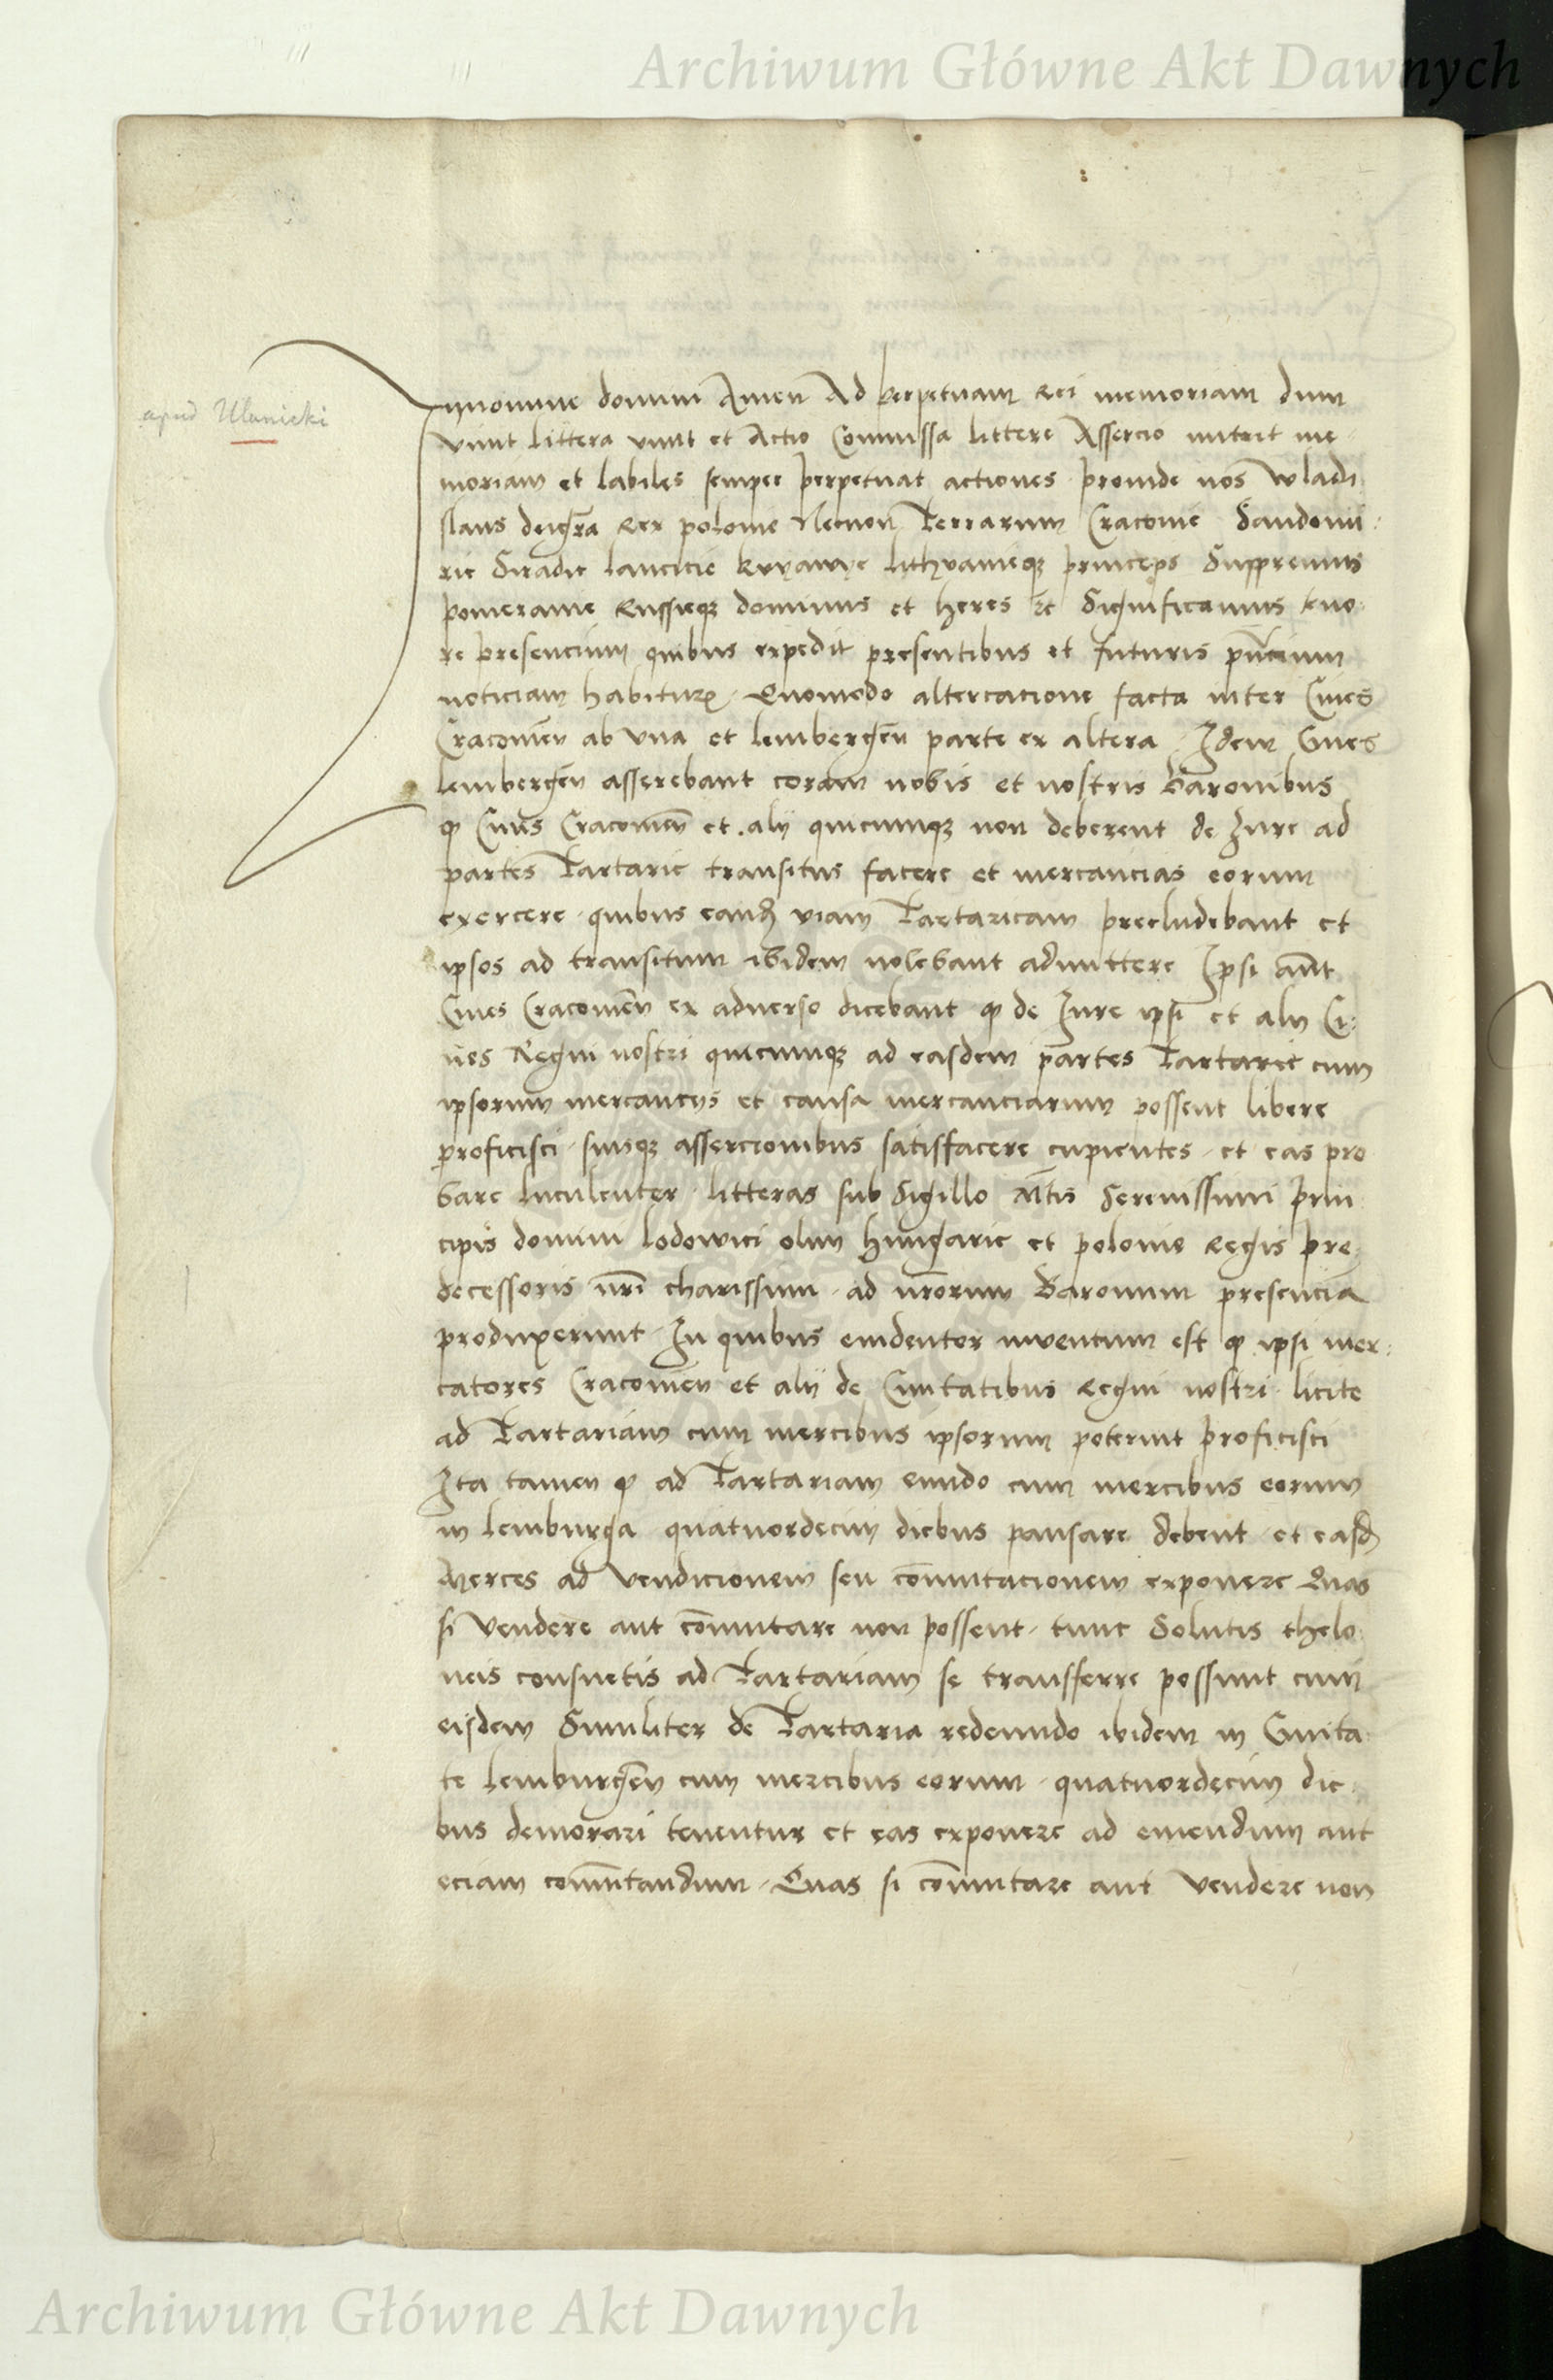 Archiwum Główne Akt Dawnych
apud Ulanicki
Innomine domini Amen Ad perpetuam Rei memoriam dum
viuit littera viuit et Actio Comissa littere Assercio nutrit me
moriam et labiles semper perpetuat actiones proinde nos Wladi
slaus deigr̃a Rex polonie Necnon Terrarum Cracouie Sandomi
rie Siradie lancicie kuyauye lithvanieqꝫ princeps Suppremus
pomeranie Russieqꝫ dominus et heres ꝛc Significamus teno
re presencium quibus expedit presentibus et futuris pñcium
noticiam habiturꝭ Quomodo altercacione facta inter Ciues
Cracouieñ ab vna et lembergeñ parte ex altera Idem Ciues
lembergeñ asserebant coram nobis et nostris Baronibus
ꝙ Ciues Cracouieñ et alij quicumqꝫ non deberent de Jure ad
partes Tartarie transitus facere et mercancias eorum
exercere quibus eandꝫ viam Tartaricam precludebant et
ipsos ad transitum ibidem nolebant admittere Ipsi aũt
Ciues Cracouieñ ex aduerso dicebant ꝙ de Jure ipsi et alij Ci
ues Regni nostri quicumqꝫ ad easdem partes Tartarie cum
ipsorum mercancijs et causa mercanciarum possent libere
proficisci suisqꝫ assercionibus satisfacere cupientes et eas pro
bare luculenter litteras sub Sigillo Serenissimi prin
cipis domini lodowici olim Hungarie et polonie Regis pre
decessoris nr̃i charissimi ad nr̃orum Baronum presencia
produxerunt In quibus euidenter inuentum est ꝙ ipsi mer
catores Cracouieñ et alij de Ciuitatibus Regni nostri licite
ad Tartariam cum mercibus ipsorum poterint proficisci
Ita tamen ꝙ ad Tartariam eundo cum mercibus eorum
in lemburga quatuordecim diebus pausare debent et easdꝫ
Merces ad vendicionem seu com̃utacionem exponere Quas
si vendere aut com̃utare non possent tunc Solutis thelo
neis consuetis ad Tartariam se transferre possunt cum
eisdem Similiter de Tartaria redeundo ibidem in Ciuita
te lemburgeñ cum mercibus eorum quatuordecim die
bus demorari tenentur et eas exponere ad emendum aut
eciam com̃utandum Quas si com̃utare aut vendere non
Archiwum Główne Akt Dawnych